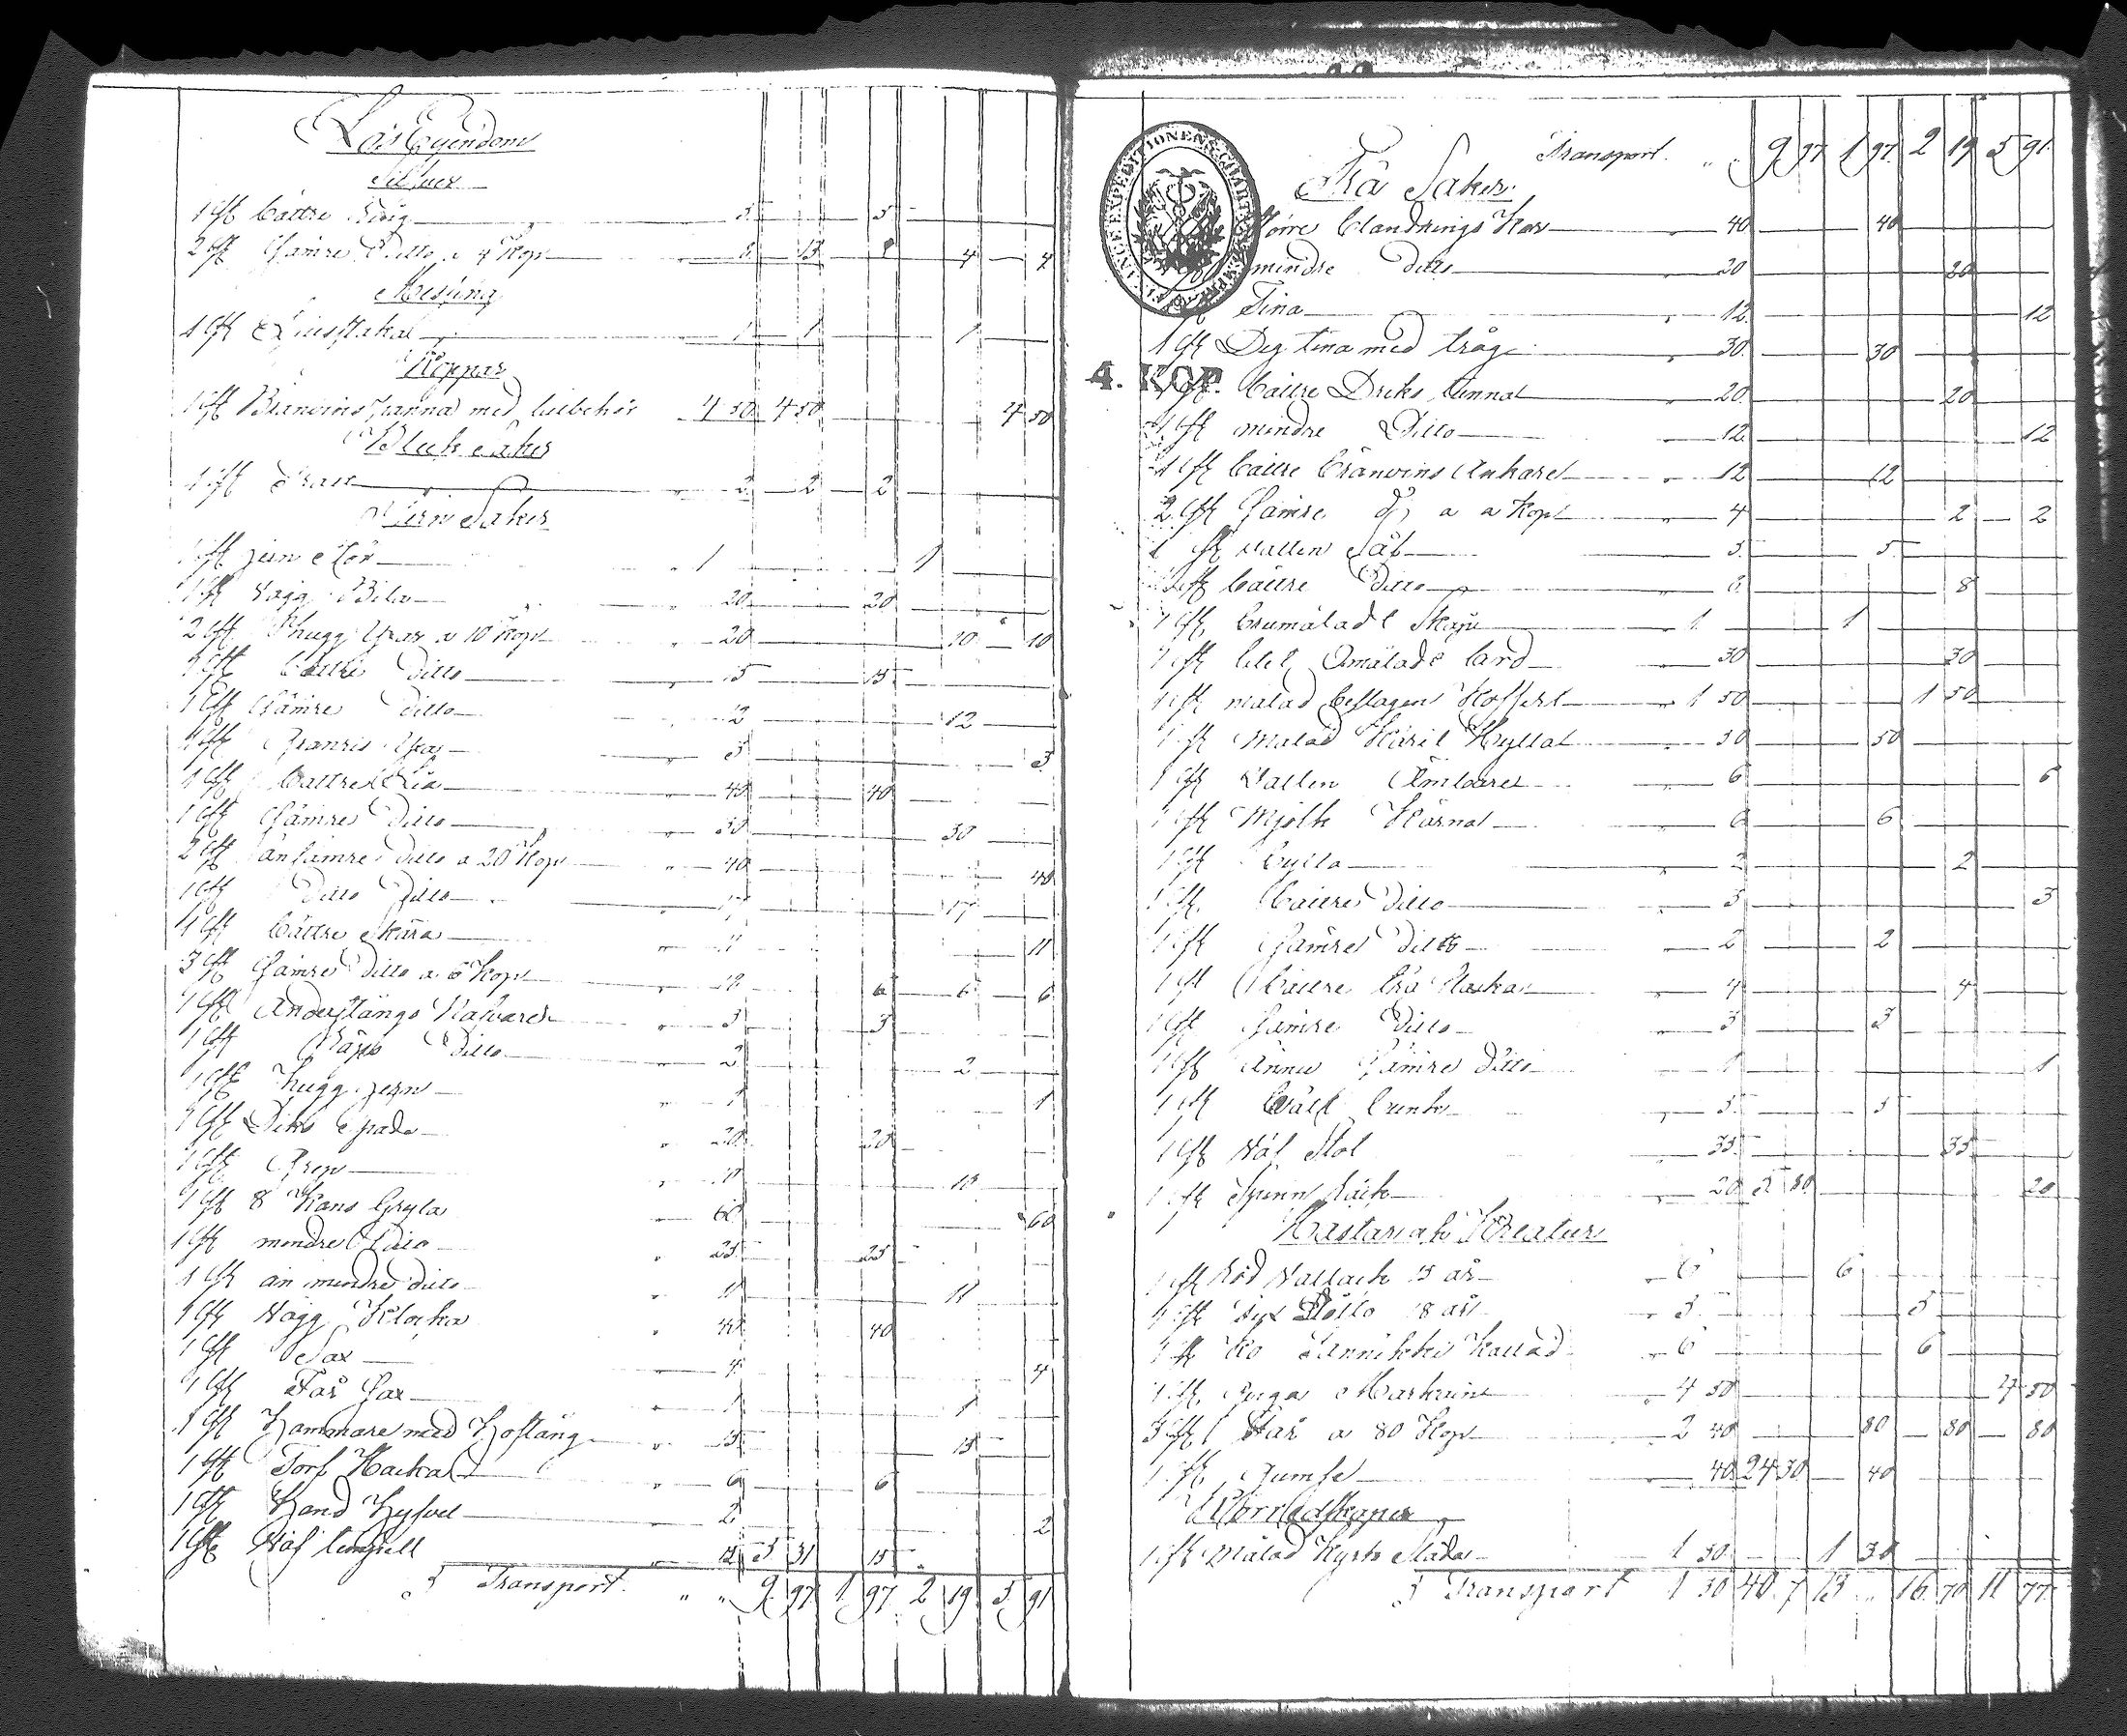 Lös Egendom
Silfver
1 st Bättre Ring 5 5
2 st Sämre Ditto a 4 Kop 8 13 4 4
Messing
1 st Liusstakal 1 1 1
Koppar
1 st Bränvins panna med tilbehör 4 50 4 50 4 50
Bleck Saker
1 st 2 2 2
Jern Saker
1 st jern Stör 1 1
1 st Vägg Bila 20 20
2 st Hugg Yxor a 10 Kop 20 10 10
1 st Bättre Ditto 15 15
1 st Sämre Ditto 12 12
1 st Yxa 3 3
1 st Bättre Lia 40 40
1 st Sämre Ditto 30 30
2 st än sämre Ditto a 20 Kop 40 40
1 st Ditto Ditto 17 17
1 st Bättre Skära 11 11
3 st Sämre Ditto a 6 Kop 18 6 6 6
1 st Nafvare 3 3
1 st Ditto 2 2
1 st Hugg jern 1 1
1 st Diks Spada 20 20
1 st Grep 10 10
1 st 8 Kans Gryta 60 60
1 st mindre Ditto 25 25
1 st än mindre ditto 11 11
1 st Vägg Klocka 40 40
1 st Sax 4 4
1 st Får Sax 1 1
1 st Hammare med Hoftång 15 15
1 st Torf Hacka 6 6
1 st Hand Hyfvel 2 2
1 st 15 5 31 15
Transport " " 9 97 1 97 2 19 5 91
Transport " " 9 97 1 97 2 19 5 91
Trä Saker
4. KOP.
Större Blandnings Kar 40 40
mindre Ditto 20 20
Tina 12 12
1 st Deg tina med tråg 30 30
1 st Bättre Dricks tunna 20 20
1 st mindre Ditto 12 12
1 st Bättre Bränvins Ankare 12 12
2 st Sämre do a 2 Kop 4 2 2
1 st Vatten Så 5 5
1 st Bättre Ditto 8 8
1 st Skåp 1 1
1 st Omålade bord 30 30
1 st målad Beslagen Koffert 1 50 1 50
1 st Målad Käril Hylla 50 50
1 st Vatten Ämbare 6 6
1 st Mjölk Kärna 6 6
1 st Bytta 2 2
1 st Bättre Ditto 3 3
1 st Sämre Ditto 2 2
1 st Bättre trä Flaska 4 4
1 st Sämre Ditto 3 3
1 st Ännu Sämre Ditto 1 1
1 st bunke 5 5
1 st Väf Stol 35 35
1 st Spinn Råck 20 3 30 20
Hästar och Kreatur
1 st Röd Vallack 15 år 6 6
1 st 18 år 5 5
1 st Ko Kallad 6 6
1 st 4 50 4 50
3 st Får a 80 Kop 2 40 80 80 80
1 st Gumse 40 24 30 40
Körredskaper
1 st Målad Kyrk Släda 1 30 1 30
Transport 1 30 40 7 13 " 16 70 11 77